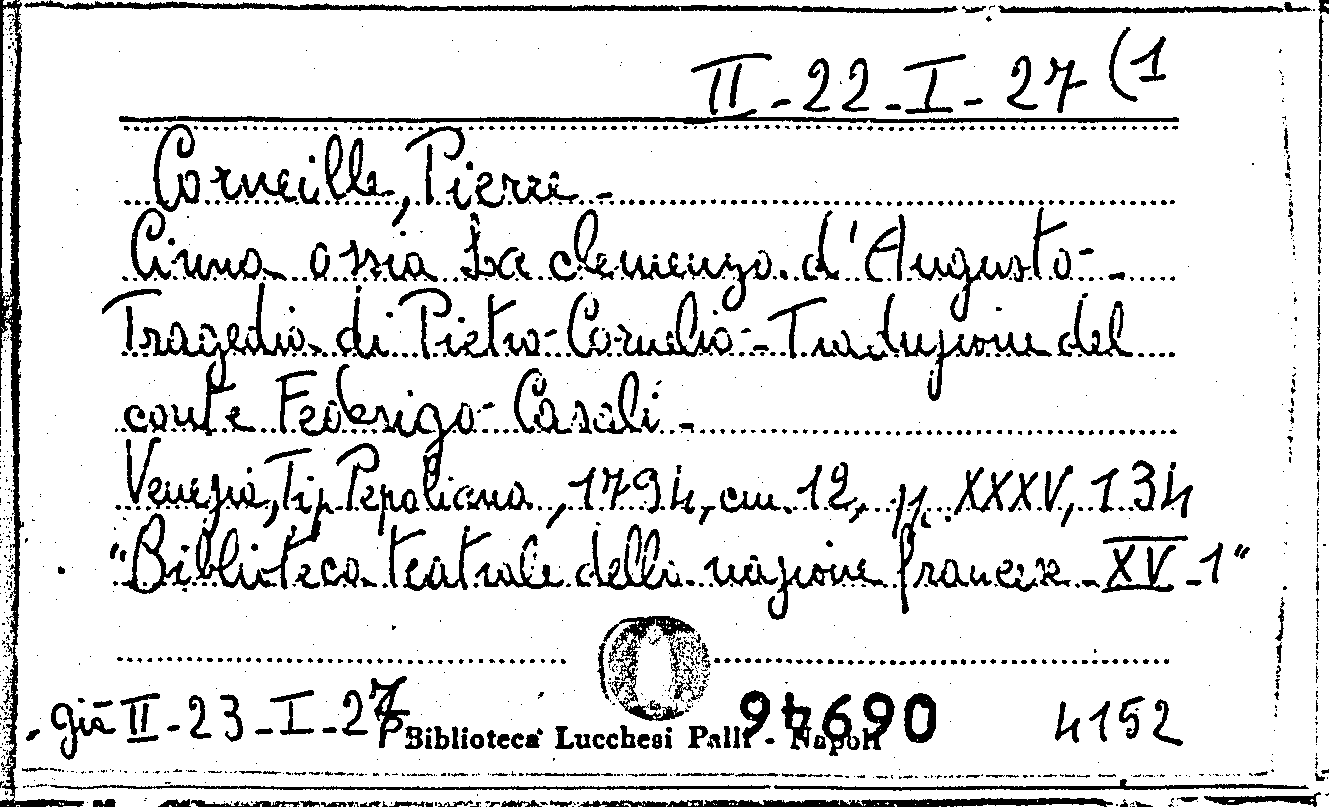 II-22-I-27 (1
Corneille, Pierre -
Cinna ossia La clemenza d'Augusto -
Tragedia di Pietro Cornelio - Traduzione del
conte Federigo Casali -
Venezia, Tip. Pepoliana, 1794, cm. 12, pp. XXXV, 134
"Biblioteca teatrale della nazione francese - XV - 1"
già II-23-I-27
Biblioteca Lucchesi Palli - Napoli
94690
4152